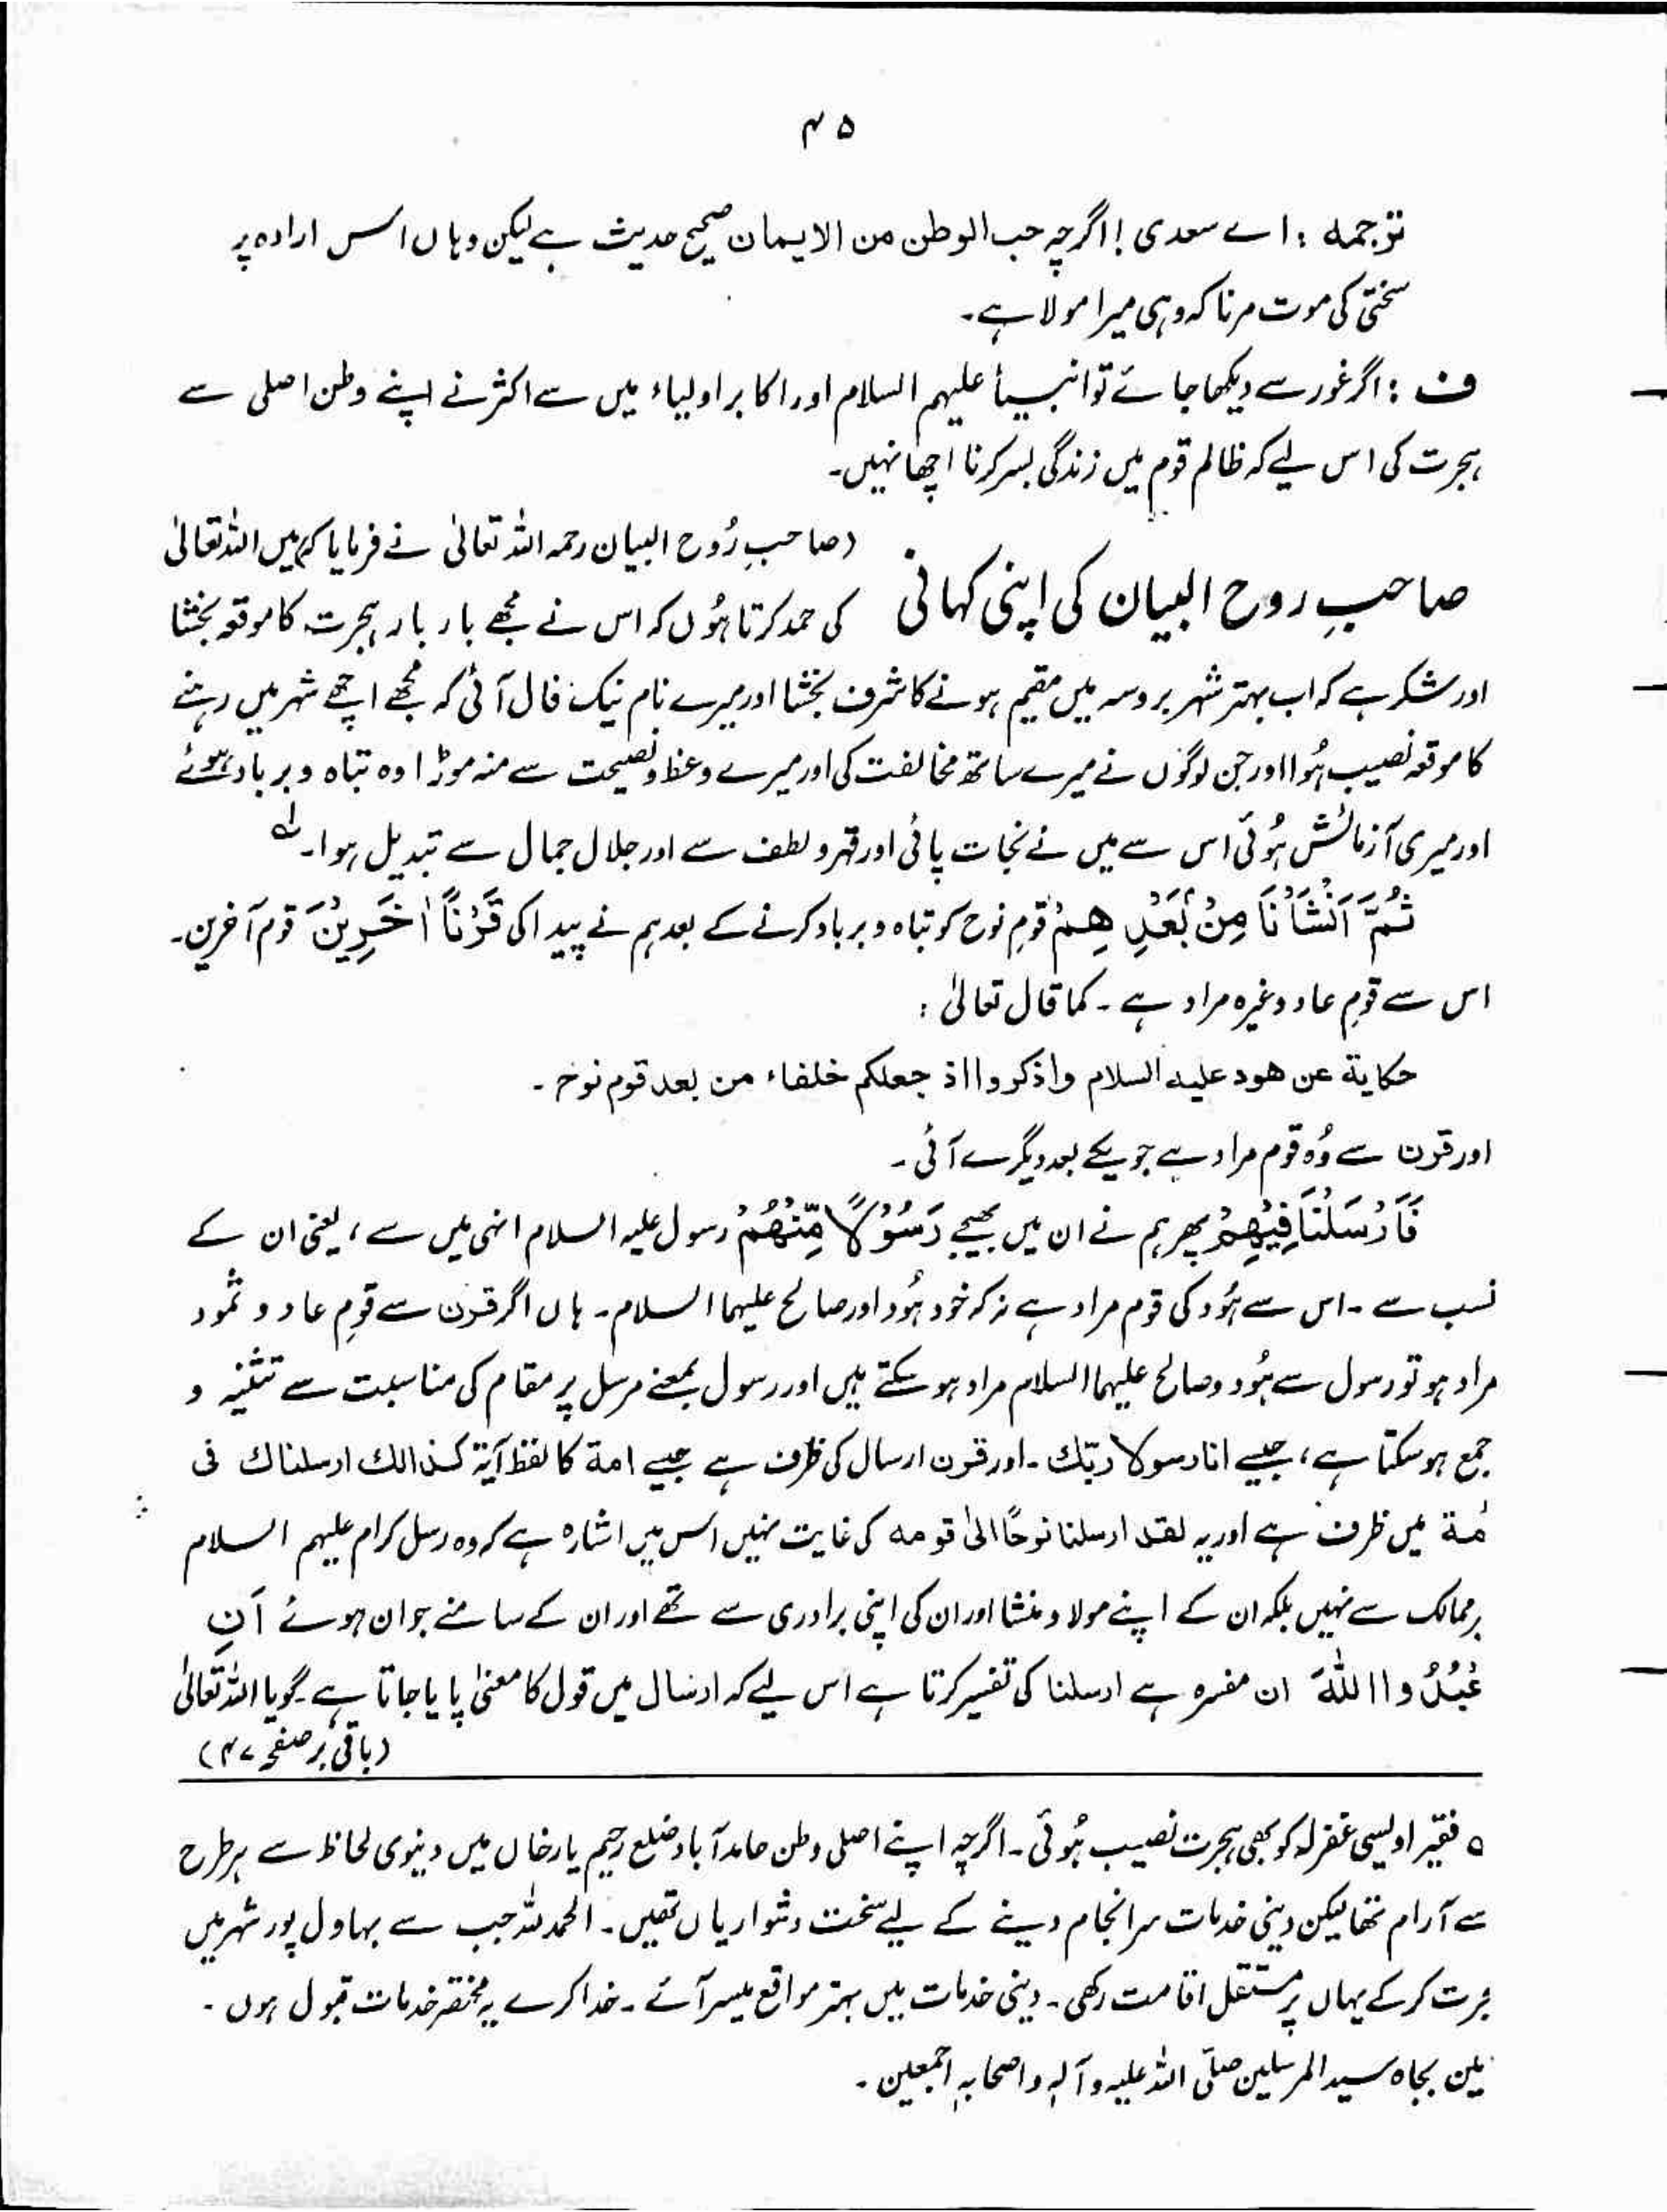 ۴۵
ترجمہ : اے سعدی ! اگرچہ حب الوطن من الایمان صحیح حدیث ہے لیکن وہاں اس ارادہ پر
سختی کی موت مرنا کہ وہی میرا مولا ہے۔
ف : اگر غور سے دیکھا جائے تو انبیأ علیہم السلام اور اکابر اولیاء میں سے اکثر نے اپنے وطن اصلی سے
ہجرت کی اس لیے کہ ظالم قوم میں زندگی بسر کرنا اچھا نہیں۔
صاحبِ روح البیان کی اپنی کہانی
(صاحبِ رُوح البیان رحمہ اللہ تعالیٰ نے فرمایا کہ) میں اللہ تعالیٰ
کی حمد کرتا ہُوں کہ اس نے مجھے بار بار ہجرت کا موقعہ بخشا
اور شکر ہے کہ اب بہتر شہر بروسہ میں مقیم ہونے کا شرف بخشا اور میرے نام نیک فال آئی کہ مجھے اچھے شہر میں رہنے
کا موقعہ نصیب ہُوا اور جن لوگوں نے میرے ساتھ مخالفت کی اور میرے وعظ و نصیحت سے منہ موڑا وہ تباہ و برباد ہوئے
اور میری آزمائش ہُوئی اس سے میں نے نجات پائی اور قہر و لطف سے اور جلال جمال سے تبدیل ہوا۔ لہ
ثُمَّ اَنْشَاْنَا مِنْ بَعْدِ هِمْ قومِ نوح کو تباہ و برباد کرنے کے بعد ہم نے پیدا کی قَرْنًا اٰخَرِیْنَ قوم آخرین۔
اس سے قومِ عاد وغیرہ مراد ہے ۔ کما قال تعالیٰ :
حکایة عن هود علیہ السلام واذکروا اذ جعلکم خلفاء من بعد قوم نوح ۔
اور قرن سے وُہ قوم مراد ہے جو یکے بعد دیگرے آئی ۔
فَاَرْسَلْنَا فِیْهِمْ پھر ہم نے ان میں بھیجے رَسُوْلًا مِّنْهُمْ رسول علیہ السلام انہی میں سے ، یعنی ان کے
نسب سے ۔ اس سے ہُود کی قوم مراد ہے نہ کہ خود ہُود اور صالح علیہما السلام ۔ ہاں اگر قرن سے قومِ عاد و ثمود
مراد ہو تو رسول سے ہُود و صالح علیہما السلام مراد ہو سکتے ہیں اور رسول بمعنے مرسل پر مقام کی مناسبت سے تثنیہ و
جمع ہو سکتا ہے ، جیسے انا رسولا ربّك ۔ اور قرن ارسال کی ظرف ہے جیسے امة کا لفظ آیة کذالك ارسلناك فی
مة میں ظرف ہے اور یہ لقد ارسلنا نوحًا الیٰ قومه کی غایت نہیں اس میں اشارہ ہے کہ وہ رسل کرام علیہم السلام
بر ممالک سے نہیں بلکہ ان کے اپنے مولد و منشا اور ان کی اپنی برادری سے تھے اور ان کے سامنے جوان ہوئے اَنِ
عْبُدُوا اللهَ ان مفسرہ ہے ارسلنا کی تفسیر کرتا ہے اس لیے کہ ارسال میں قول کا معنیٰ پایا جاتا ہے ۔ گویا اللہ تعالیٰ
(باقی بر صفحہ ۴۷)
ہ فقیر اویسی غفرلہ کو بھی ہجرت نصیب ہُوئی ۔ اگرچہ اپنے اصلی وطن حامد آباد ضلع رحیم یار خاں میں دینوی لحاظ سے ہر طرح
سے آرام تھا لیکن دینی خدمات سرانجام دینے کے لیے سخت دشواریاں تھیں ۔ الحمد للہ جب سے بہاول پور شہر میں
جرت کر کے یہاں پر مستقل اقامت رکھی ۔ دینی خدمات میں بہتر مواقع میسر آئے ۔ خدا کرے یہ مختصر خدمات قبول ہوں ۔
مین بجاہ سید المرسلین صلّی اللہ علیہ وآلہٖ واصحابہٖ اجمعین ۔